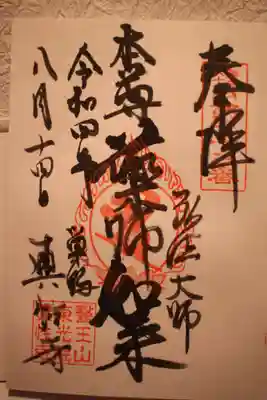 奉拝
弘法大師
本尊 薬師如来
令和四年
巣鴨
八月十四日
眞性寺
醫王山
東光院
眞性寺